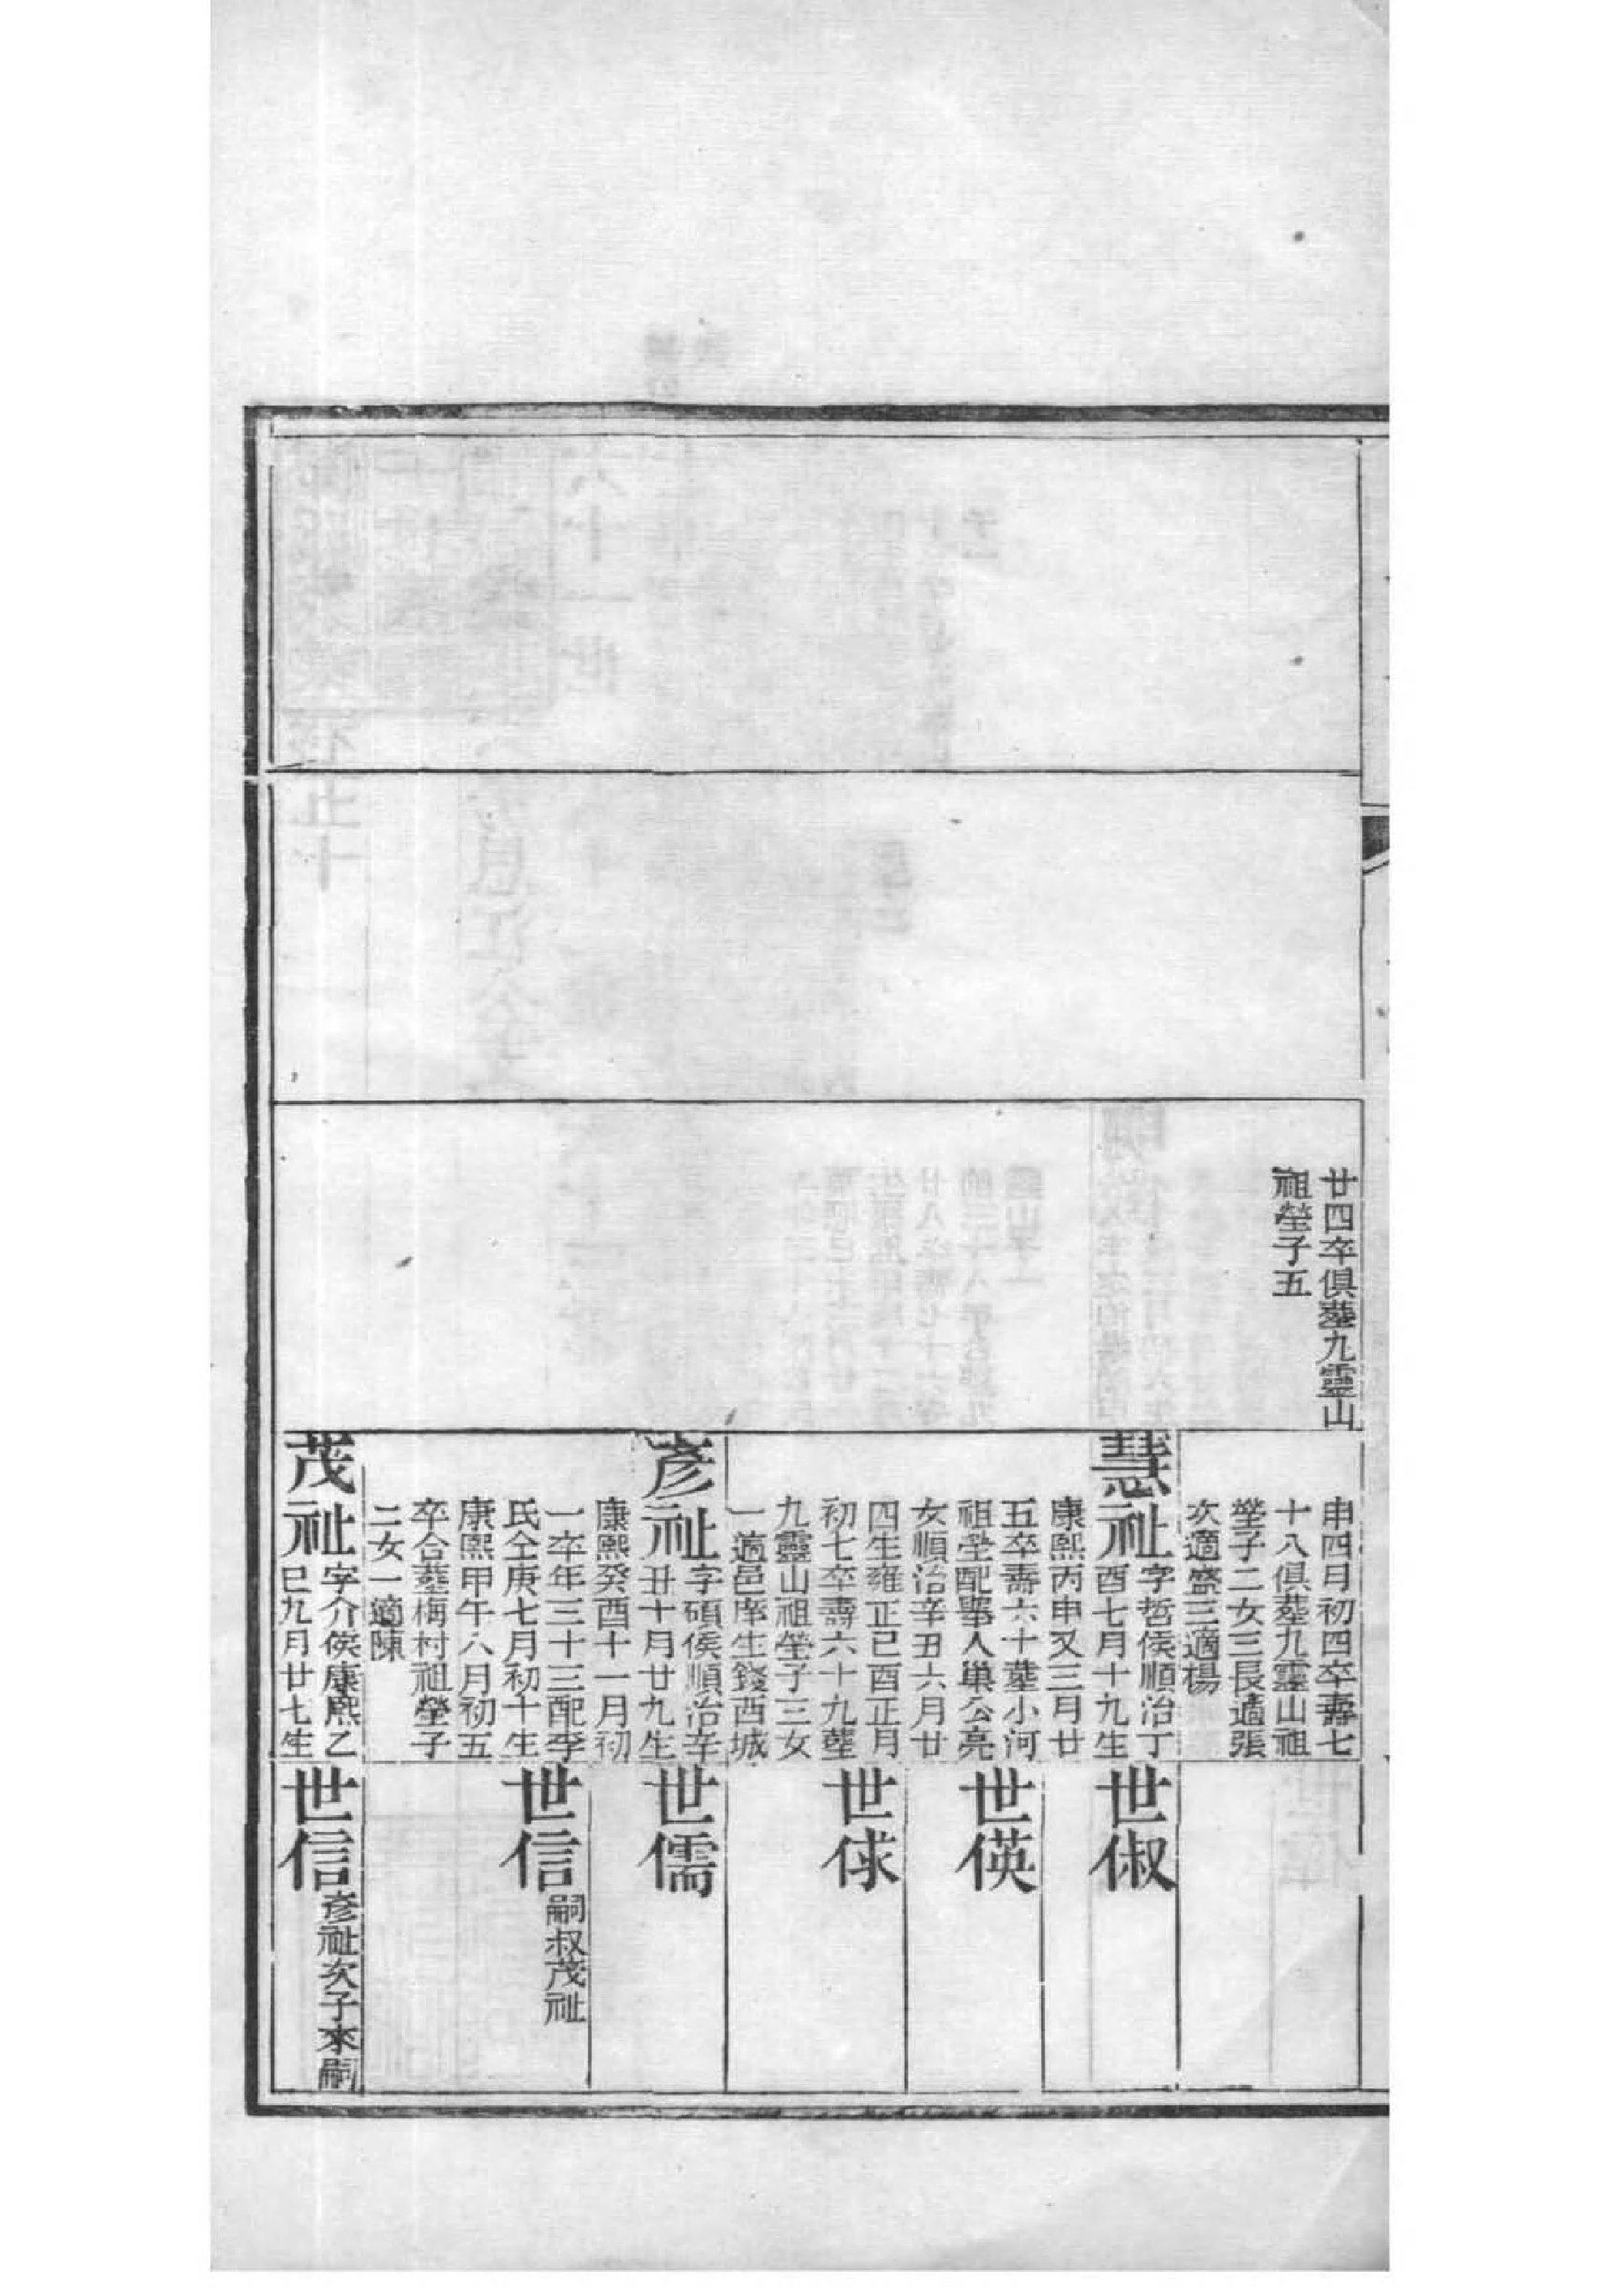 廿四卒俱塟九靈山
祖塋子五
申四月初四卒壽七
十八俱塟九靈山祖
塋子二女三長適張
次適盛三適楊
慧祉字哲侯順治丁
酉七月十九生
康熙丙申又三月廿
五卒壽六十塟小河
祖塋配舉人巢公亮
女順治辛丑六月廿
四生雍正己酉正月
初七卒壽六十九塟
九靈山祖塋子三女
一適邑庠生錢酉城
彥祉字碩侯順治辛
丑十月廿九生
康熙癸酉十一月初
一卒年三十三配李
氏仝庚七月初十生
康熙甲午六月初五
卒合塟梅村祖塋子
二女一適陳
茂祉字介侯康熙乙
巳九月廿七生
世俶
世偀
世俅
世儒
世信嗣叔茂祉
世信彥祉次子來嗣